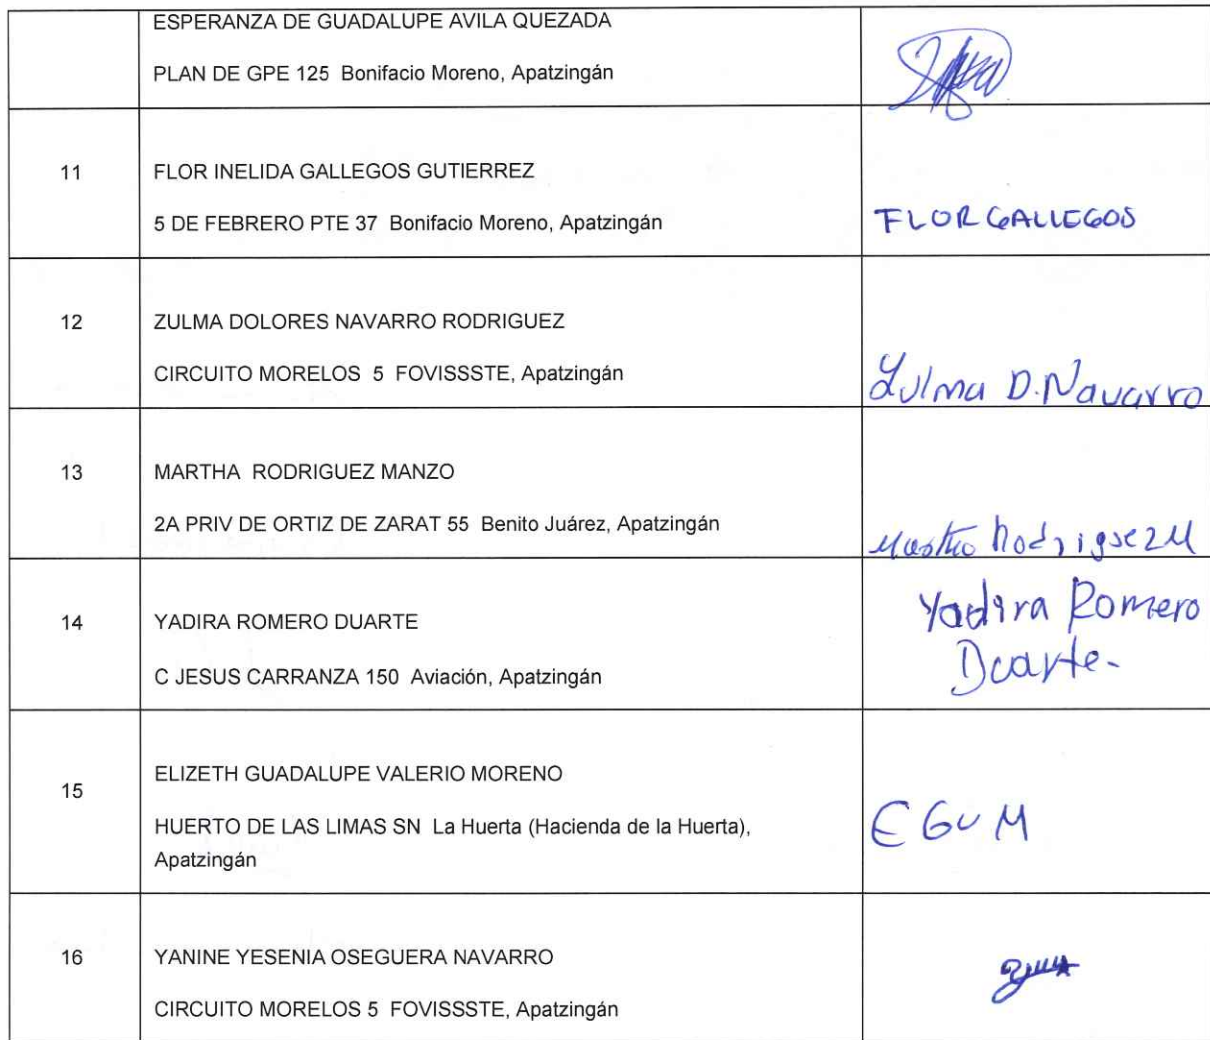 ESPERANZA DE GUADALUPE AVILA QUEZADA
PLAN DE GPE 125 Bonifacio Moreno, Apatzingán
11
FLOR INELIDA GALLEGOS GUTIERREZ
5 DE FEBRERO PTE 37 Bonifacio Moreno, Apatzingán
FLOR GALLEGOS
12
ZULMA DOLORES NAVARRO RODRIGUEZ
CIRCUITO MORELOS 5 FOVISSSTE, Apatzingán
Zulma D. Navarro
13
MARTHA RODRIGUEZ MANZO
2A PRIV DE ORTIZ DE ZARAT 55 Benito Juárez, Apatzingán
Rodriguez M
14
YADIRA ROMERO DUARTE
C JESUS CARRANZA 150 Aviación, Apatzingán
Yadira Romero
Duarte-
15
ELIZETH GUADALUPE VALERIO MORENO
HUERTO DE LAS LIMAS SN La Huerta (Hacienda de la Huerta),
Apatzingán
EGVM
16
YANINE YESENIA OSEGUERA NAVARRO
CIRCUITO MORELOS 5 FOVISSSTE, Apatzingán